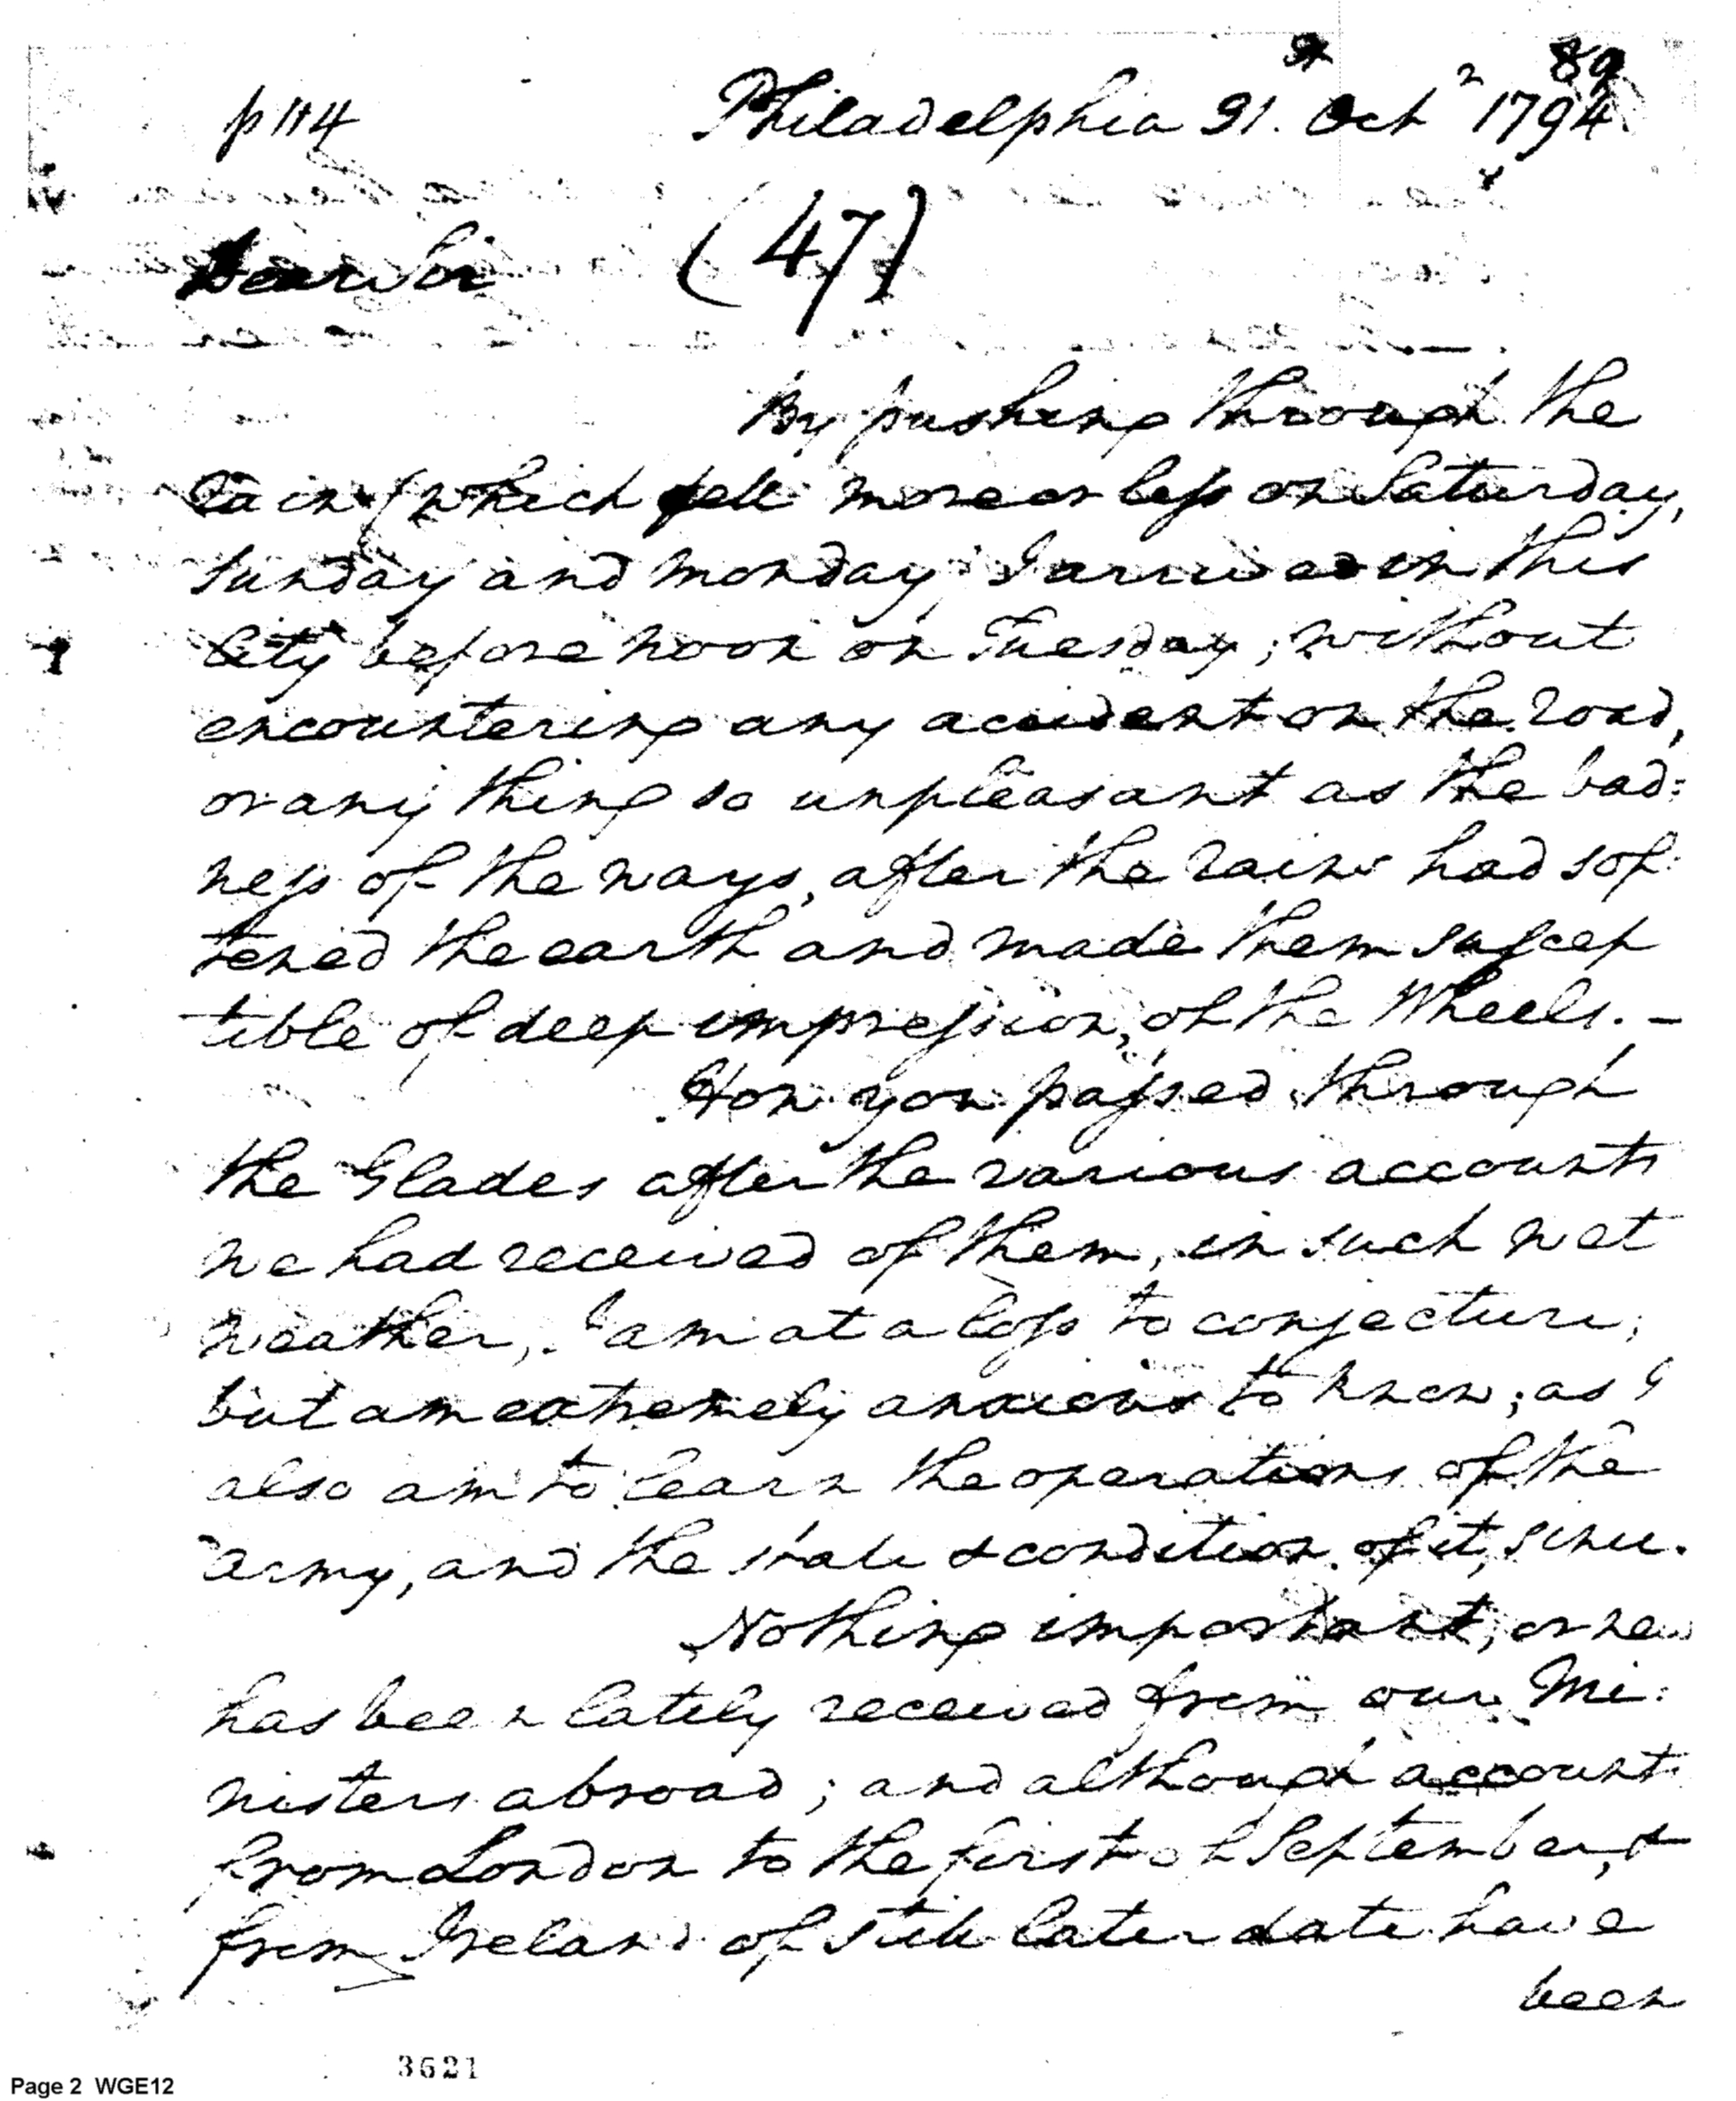 89
p 114 Philadelphia 31st Octr 1794.
Dear Sir (47)
By pushing through the
rain (which fell more or less on Saturday,
Sunday and Monday) I arrived in this
City before noon on Tuesday; without
encountering any accident on the road,
or any thing so unpleasant as the bad:
ness of the ways, after the rains had sof:
tened the earth and made them suscep
tible of deep impression, of the Wheels. –
How you passed through
the Glades after the various accounts
we had received of them, in such wet
weather, I am at a loss to conjecture;
but am extremely anxious to know; as I
also am to learn the operations of the
army, and the state & condition of it, since.
Nothing important, or new
has been lately received from our Mi:
nisters abroad; and although accounts
from London to the first of September, &
from Ireland of still later date have
been
3621
Page 2 WGE12